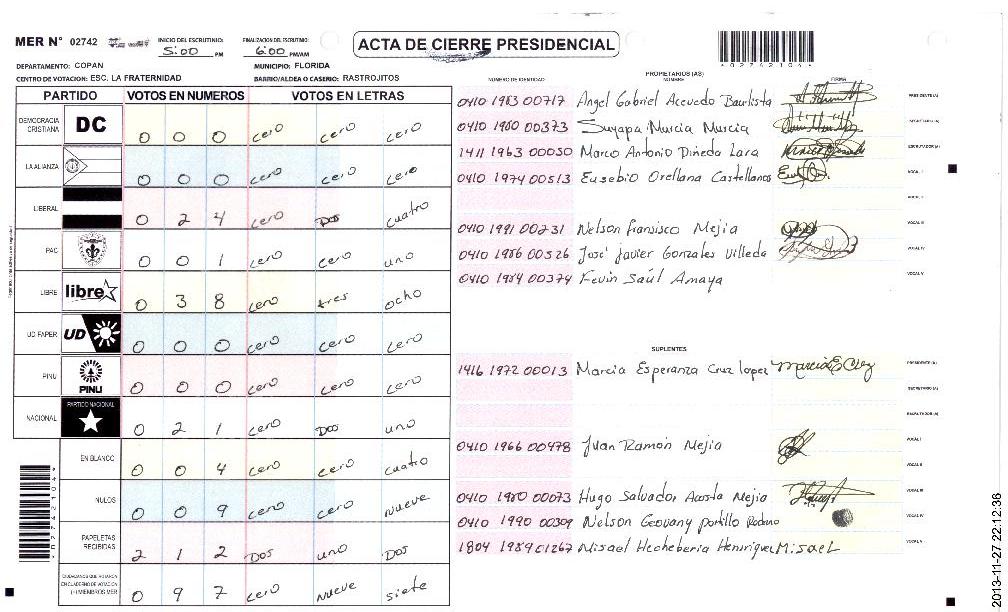 MER N° 02742
INICIO DEL ESCRUTINIO: 5:00 PM
FINALIZACION DEL ESCRUTINIO: 6:00 PM/AM
ACTA DE CIERRE PRESIDENCIAL
DEPARTAMENTO: COPAN
MUNICIPIO: FLORIDA
CENTRO DE VOTACION: ESC. LA FRATERNIDAD
BARRIO/ALDEA O CASERIO: RASTROJITOS
PARTIDO VOTOS EN NUMEROS VOTOS EN LETRAS
DEMOCRACIA CRISTIANA DC 0 0 0 cero cero cero
LA ALIANZA 0 0 0 cero cero cero
LIBERAL 0 2 4 cero Dos cuatro
PAC 0 0 1 cero cero uno
LIBRE libre 0 3 8 cero tres ocho
UD-FAPER UD 0 0 0 cero cero cero
PINU PINU 0 0 0 cero cero cero
NACIONAL PARTIDO NACIONAL 0 2 1 cero Dos uno
EN BLANCO 0 0 4 cero cero cuatro
NULOS 0 0 9 cero cero nueve
PAPELETAS RECIBIDAS 2 1 2 Dos uno Dos
CIUDADANOS QUE VOTARON EN CUADERNO DE VOTACION (+) MIEMBROS MER 0 9 7 cero nueve siete
NUMERO DE IDENTIDAD
PROPIETARIOS (AS)
NOMBRE
FIRMA
0410 1983 00717 Angel Gabriel Acevedo Bautista PRESIDENTE (A)
0410 1980 00373 Suyapa Murcia Murcia SECRETARIO (A)
1411 1963 00030 Marco Antonio Pineda Lara ESCRUTADOR (A)
0410 1974 00513 Eusebio Orellana Castellanos VOCAL I
VOCAL II
0410 1991 00231 Nelson Fransisco Mejia VOCAL III
0410 1986 00526 José javier Gonzales Villeda VOCAL IV
0410 1984 00374 Kevin Saúl Amaya VOCAL V
SUPLENTES
1416 1972 00013 Marcia Esperanza Cruz lopez PRESIDENTE (A)
SECRETARIO (A)
ESCRUTADOR (A)
0410 1966 00478 Juan Ramon Mejia VOCAL I
VOCAL II
0410 1980 00073 Hugo Salvador Acosta Mejia VOCAL III
0410 1990 00309 Nelson Geovany portillo VOCAL IV
1804 1989 01267 Misael Hecheberia Henriquez Misael VOCAL V
2013-11-27 22:12:36